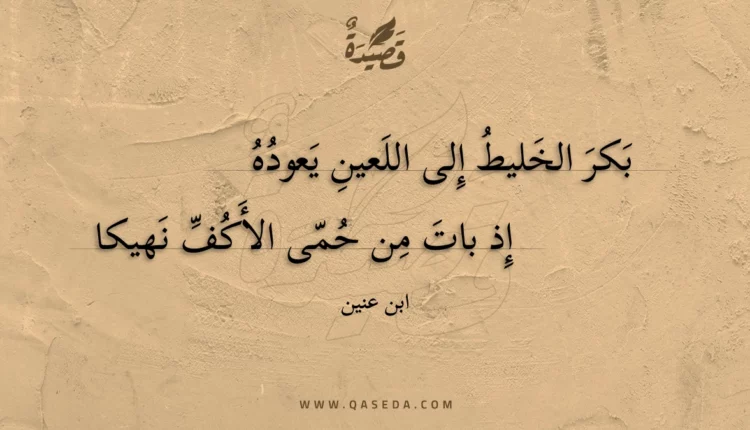 قَصِيدَةٌ
بَكرَ الخَليطُ إِلى اللَعينِ يَعودُهُ
إِذ باتَ مِن حُمّى الأَكُفِّ نَهيكا
ابن عنين
WWW.QASEDA.COM